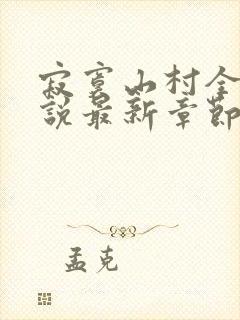 寂寞山村全
說最新章節
孟克